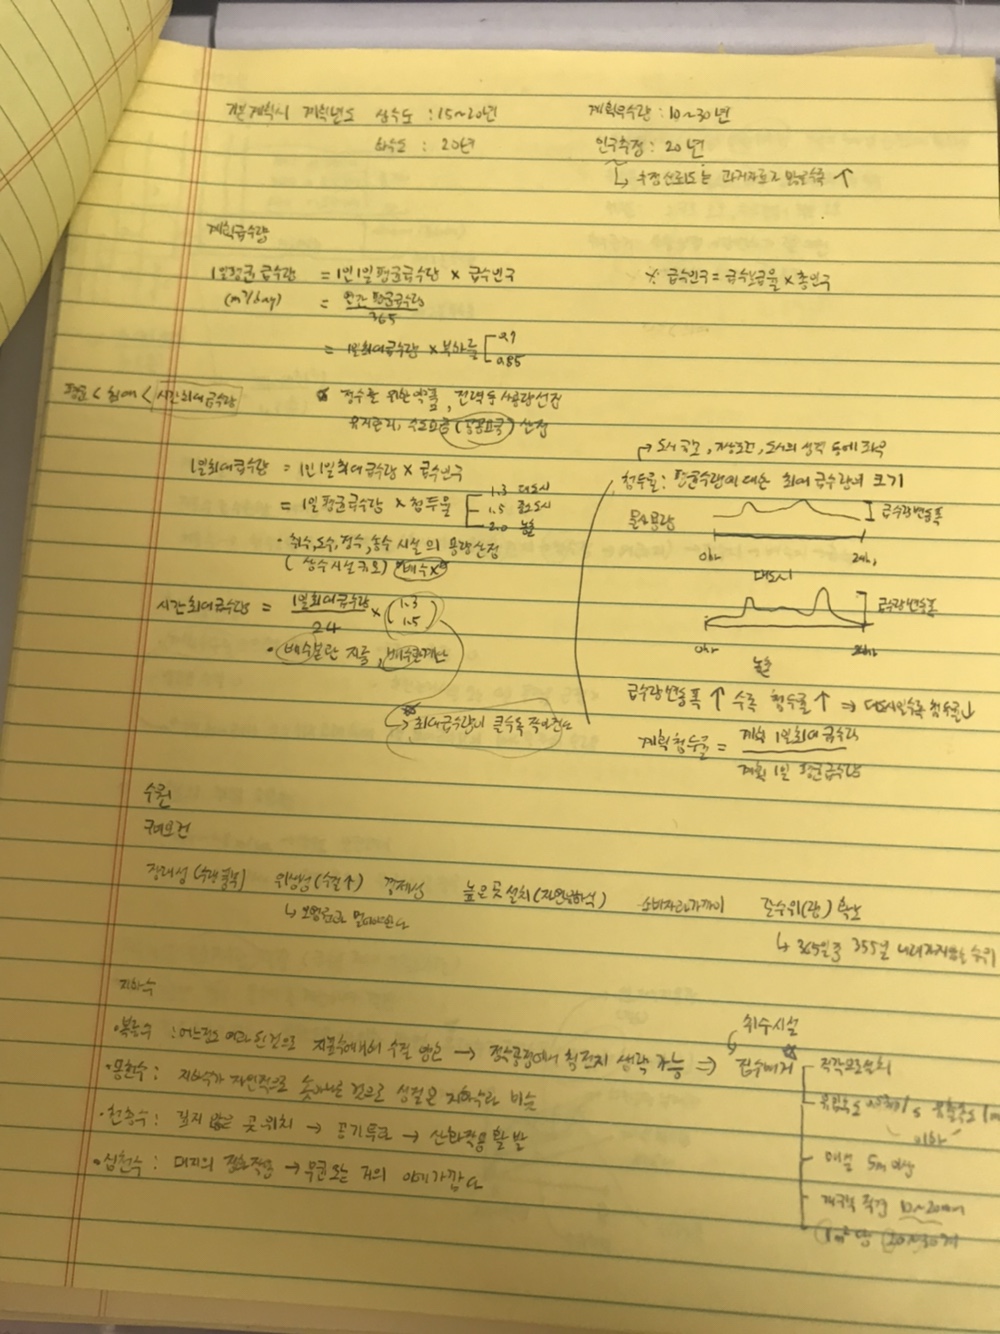 기본계획시 계획년도 상수도 : 15~20년 계획우수량 : 10~30년
하수도 : 20년 인구추정 : 20년
↳ 추정신뢰도는 과거자료가 많을수록 ↑
계획급수량
1일평균급수량 = 1인1일 평균급수량 × 급수인구 ※ 급수인구 = 급수보급율 × 총인구
(m³/day) = 연간 평균급수량 / 365
= 1일최대급수량 × 부하율 0.7 0.85
평균 < 최대 < 시간최대급수량
정수를 위한 약품, 전력 등 사용량선정
유지관리, 수도요금 (공공요금) 산정
1일최대급수량 = 1인1일최대급수량 × 급수인구
= 1일평균급수량 × 첨두율 1.3 대도시 1.5 중소도시 2.0 농촌
· 취수, 도수, 정수, 송수 시설의 용량산정
(상수시설규모) 배수×
시간최대급수량 = 1일최대급수량 / 24 × (1.3 1.5)
· 배수본관 지름, 배수관계산
→ 최대급수량이 클수록
→ 도시규모, 기상조건, 도시의 성격 등에 좌우
첨두율 : 평균수량에 대한 최대급수량의 크기
물사용량 급수량변동폭
0hr 24hr
대도시
급수량변동폭
0hr 24hr
농촌
급수량변동폭 ↑ 수록 첨두율 ↑ ⇒ 대도시일수록 첨두율↓
계획첨두율 = 계획 1일최대급수량 / 계획 1일 평균급수량
수원
구비요건
장래성 (수량풍부) 위생성 (수질↑) 경제성 높은곳 설치 (자연유하식) 소비자와가까이 갈수위(량) 확보
↳ 오염원과 멀어야한다 ↳ 365일중 355일 내려가지않는 수위
지하수
취수시설
· 복류수 : 어느정도 여과된것으로 지표수에비해 수질 양호 → 정수공정에서 침전지 생략 가능 ⇒ 집수매거 직각으로설치
· 용천수 : 지하수가 자연적으로 솟아나온 것으로 성질은 지하수와 비슷 유입속도 유출속도 1m
이하
· 천층수 : 깊지 않은 곳 위치 → 공기투과 → 산화작용 활발 매설 5m 이상
· 심천수 : 대지의 정화작용 → 무균 또는 거의 이에가깝다 집수공 직경 10~20mm
1m² 당 20~30개